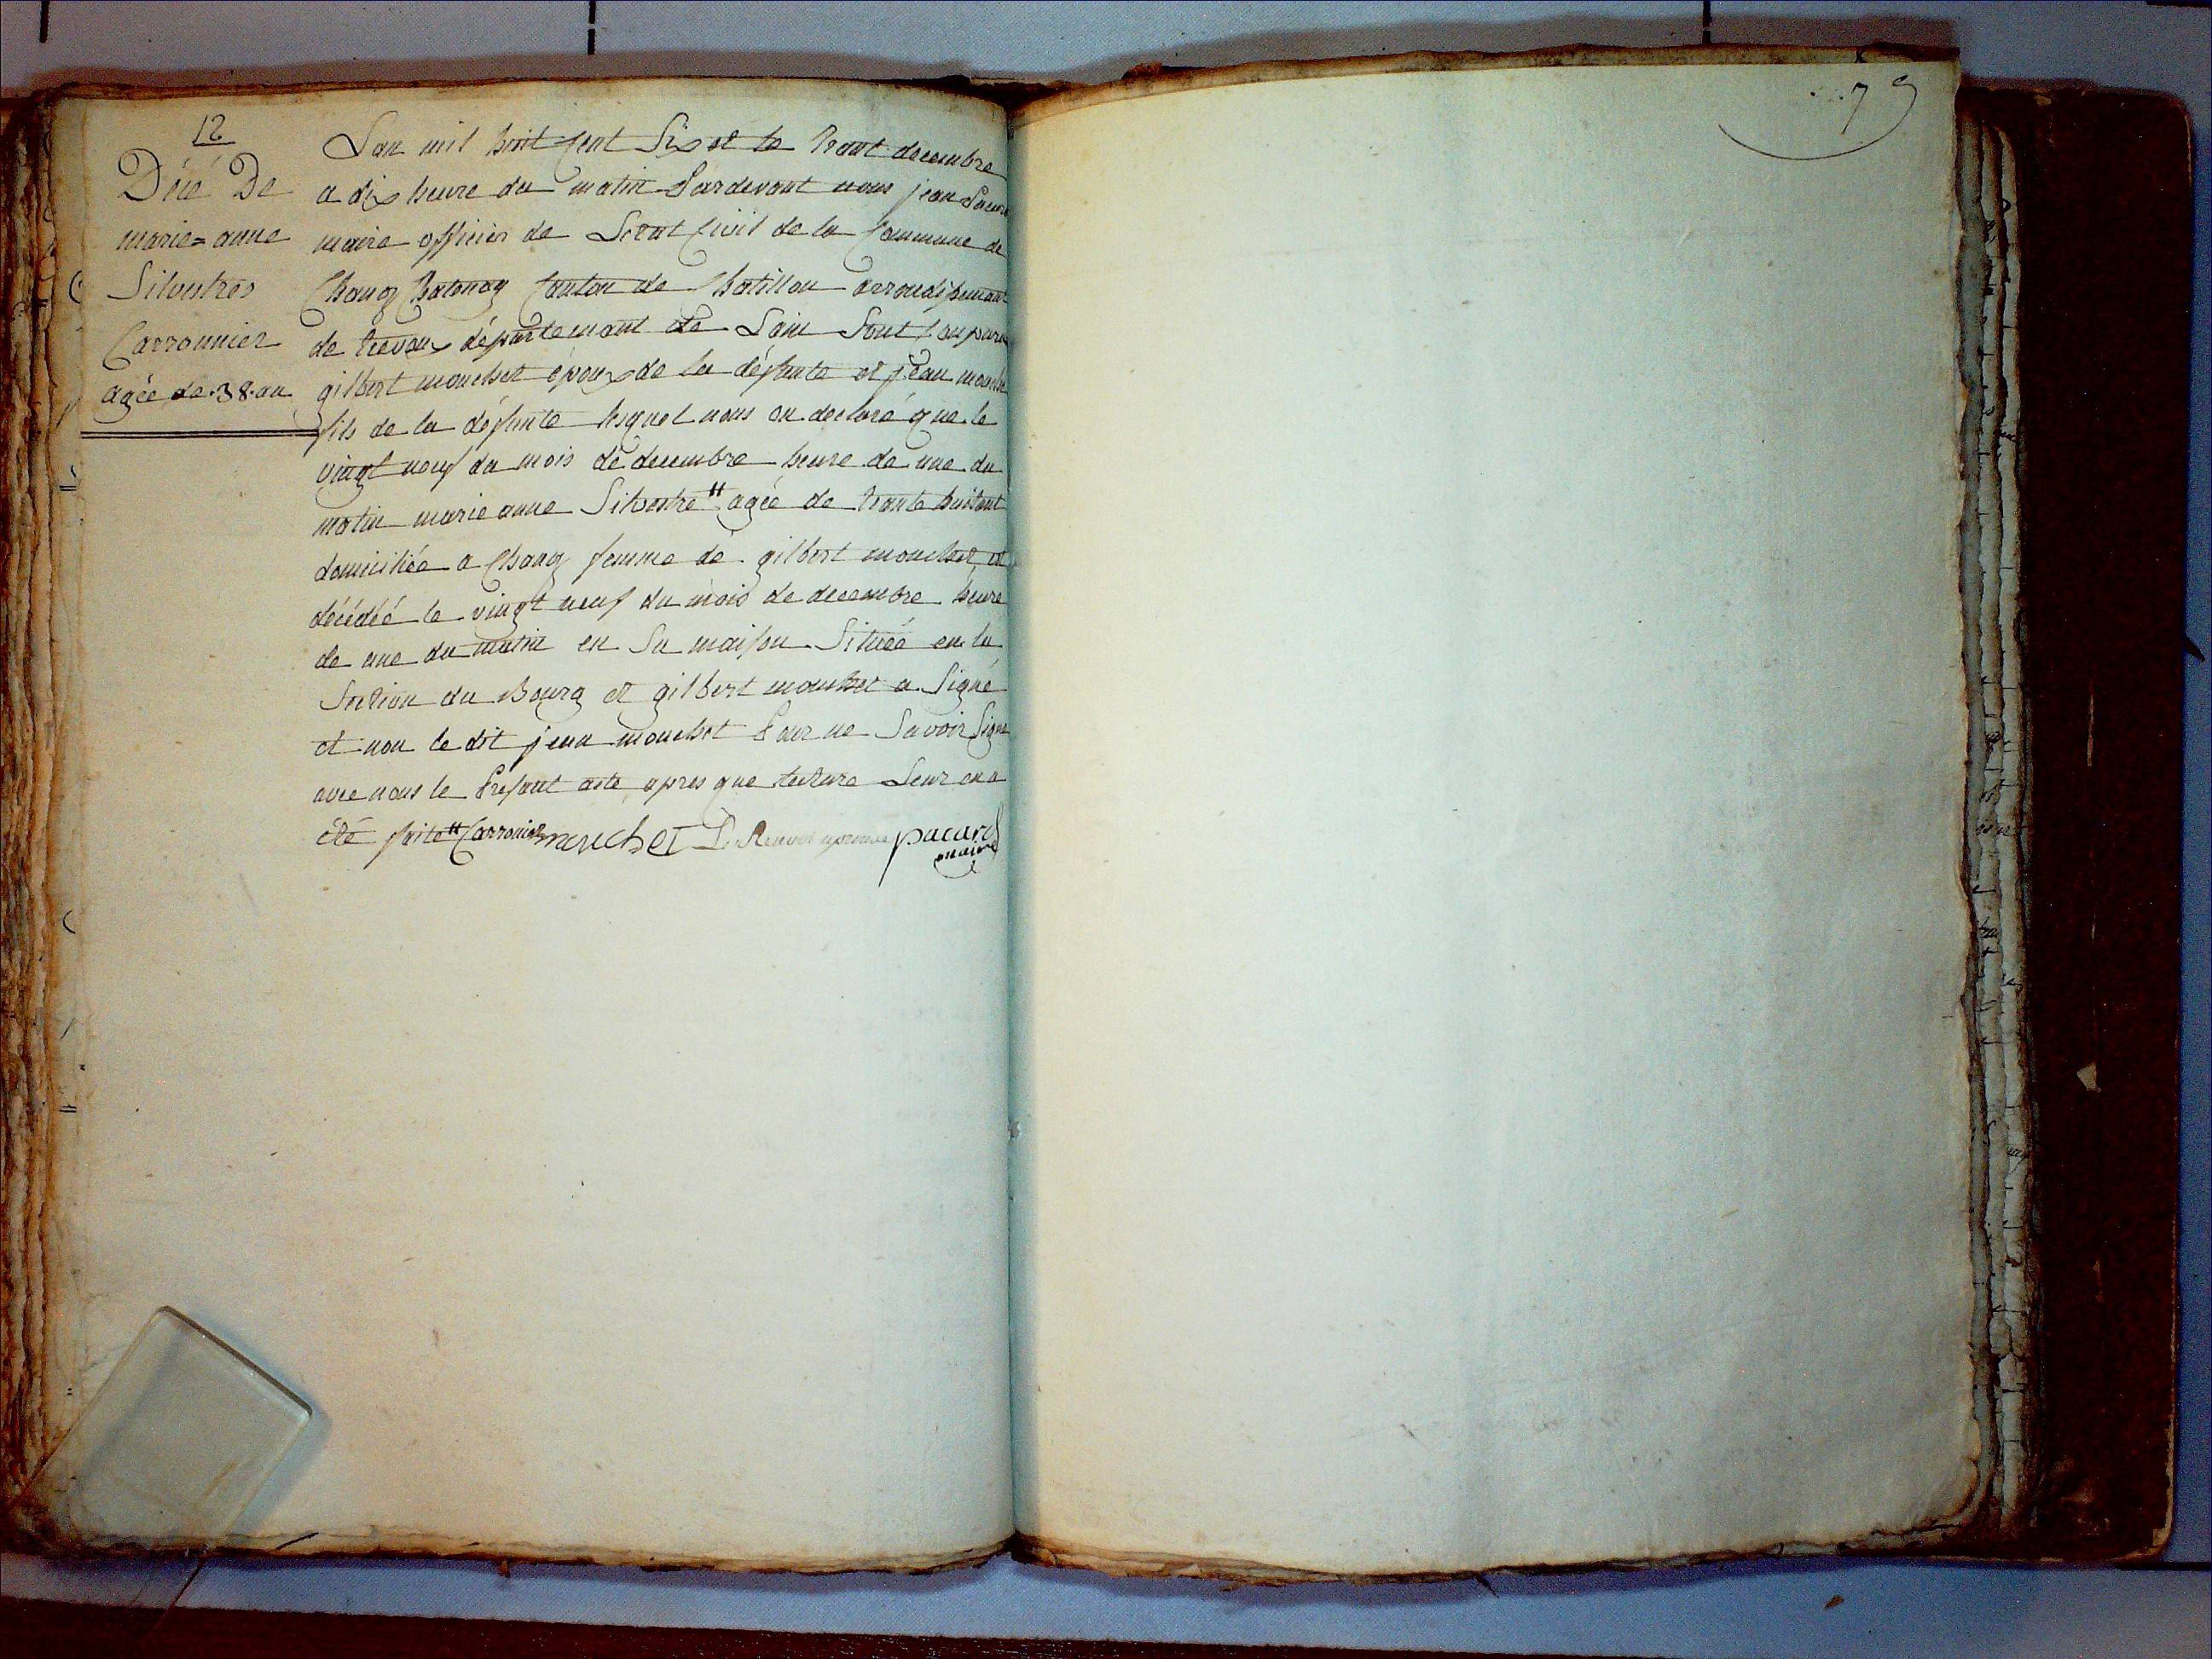 79
12
Décé De
marie=anne
Silvestres
Carronnier
agée de .38. an
Lan mil huit cent Six et le trant decembre
a dix heure du matin Pardevant nous jean Pacard
maire officier de Letat Civil de la Commune de
Chanoz Chatenay Canton de Chatillon arrondissemant
de trevoux départemant de Lain Sont Comparu
gilbert mouchet époux de la défunte et jean mouchet
fils de la défunte lesquel nous on declaré que le
vingt neuf du mois de decembre heure de une du
matin marie anne Silvestre " agée de trante huit ant
domiciliée a Chanoz femme de gilbert mouchet, et
décédéé le vingt neuf du mois de decembre heure
de une du matin en Sa maison Située en la
Section du Bourg et gilbert mouchet a Signé
et non le dit jean mouchet Pour ne Savoir Signe
avec nous le Presant acte apres que lecture Leur en a
été faite " Carronier mouchet Renvoi aprouvé pacard
maire